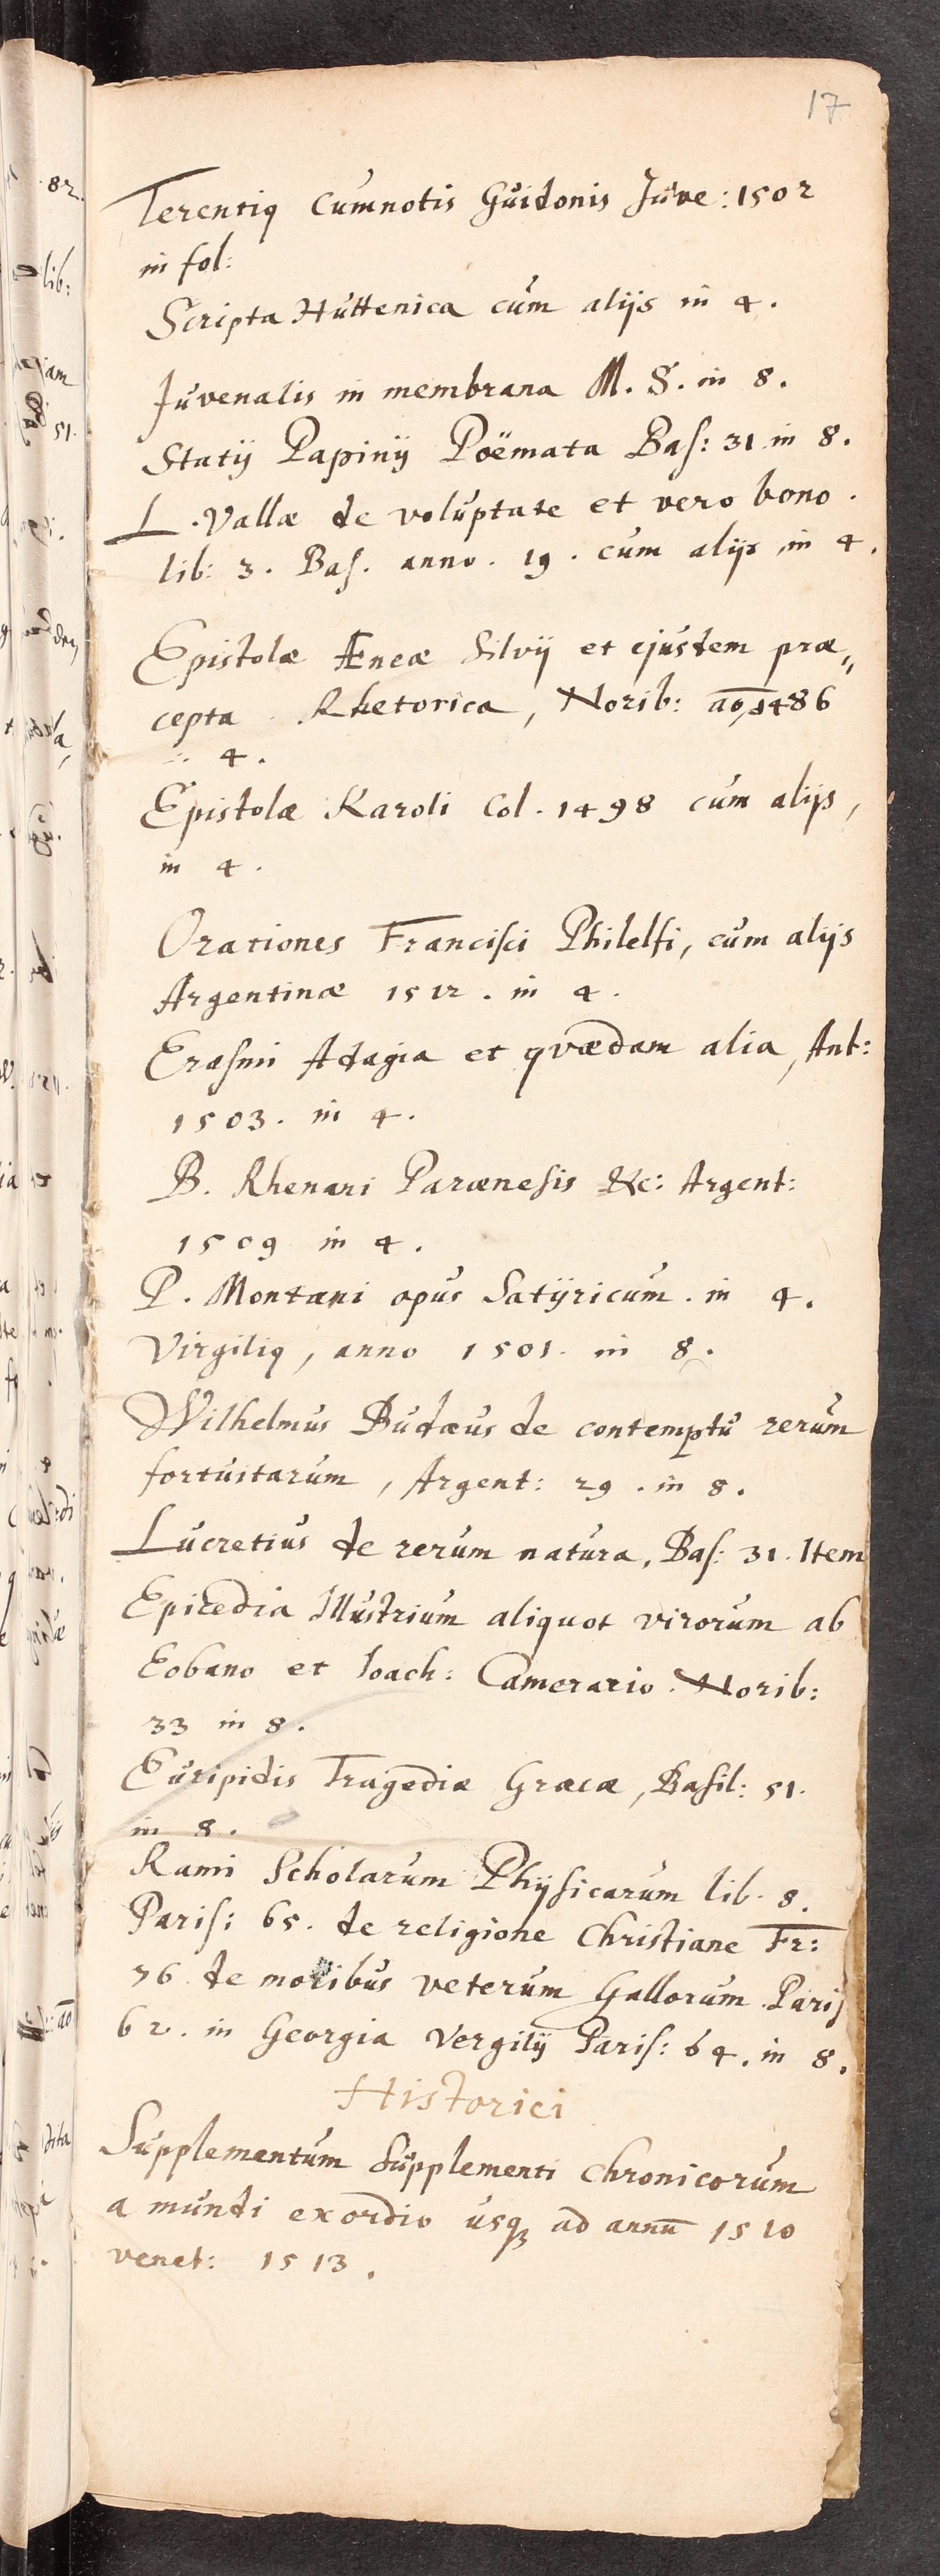 17
Terentiq cum notis Guidonis Juve: 1502
in fol:
Scripta Huttenica cum alijs in 4.
Juvenalis in membrana M. S. in 8.
Statij Papinij Poëmata Bas: 31 in 8.
L. Vallæ de voluptate et vero bono.
lib: 3. Bas. anno. 19. cum alijs in 4.
Epistolæ Æneæ Silvij et ejusdem præ„
cepta Rhetorica, Norib: ao, 1486
in 4.
Epistolæ Karoli Col. 1498 cum alijs,
in 4.
Orationes Francisci Philelfi, cum alijs
Argentinæ 1512. in 4.
Erasmi Adagia et quædam alia, Ant:
1503. in 4.
B. Rhenani Parænesis &c: Argent:
1509 in 4.
P. Montani opus Satÿricum. in 4.
Virgiliq, anno 1501. in 8.
Wilhelmus Budæus de contemptu rerum
fortuitarum, Argent: 29. in 8.
Lucretius de rerum natura, Bas: 31. Item
Epicedia Illustrium aliquot virorum ab
Eobano et Ioach: Camerario. Norib:
33 in 8.
Euripidis Tragediæ Græcæ, Basil: 51.
in 8.
Rami Scholarum Phÿsicarum lib. 8.
Paris: 65. de religione Christiane Fr:
76 de moribus veterum Gallorum Paris
62. in Georgia Vergilij Paris: 64. in 8.
Historici
Supplementum Supplementi Chronicorum
a mundi exordio usq ad annū 1510
venet: 1513.